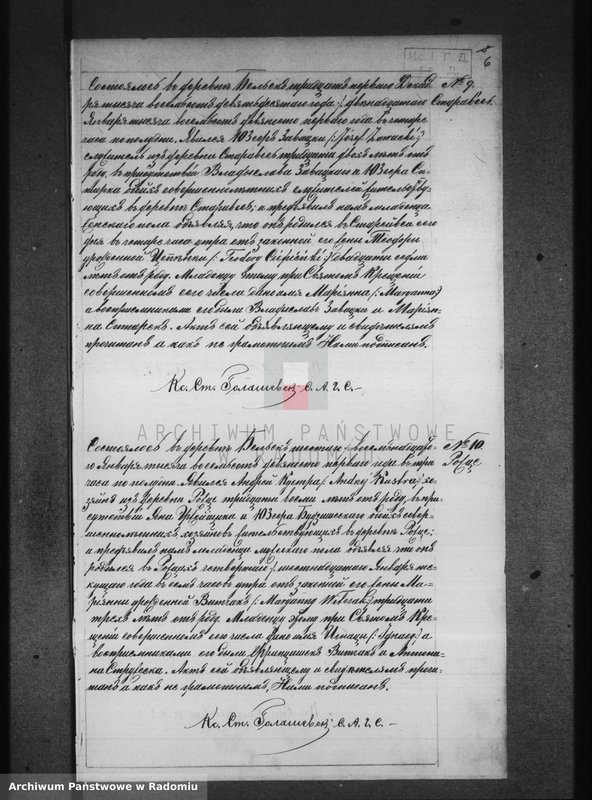 6
Состоялось въ деревнѣ Вельскъ тридцать перваго Декаб- № 9.
ря тысяча восемьсотъ девятьдесятаго года /: двѣнадцатаго Старавесь.
Января тысяча восемьсотъ девяносто перваго года въ четыре
часа по полудни. Явился Юзефъ Завацки /: Józef Zawacki :/
служитель изъ деревни Старавесь тридцати двохъ лѣтъ отъ
роду, въ присутствіи Владыслава Завацкаго и Юзефа
обоихъ совершеннолѣтнихъ служителей жительству-
ющихъ въ деревнѣ Старавесь; и предъявилъ намъ младенца
женскаго пола объявляя, что онъ родился въ Старейвси сего
дня въ четыре часа утра отъ законной его жены Теофори
урожденной /: Teodory :/ двадцати седми
лѣтъ отъ роду. Младенцу этому при Святомъ Крещеніи
совершенномъ сего числа дано имя Маріянна /: Maryanna :/
а воспріемниками его были Владыславъ Завацки и Маріян-
на Сптарекъ. Актъ сей объявляющему и свидѣтелямъ
прочитанъ а какъ не грамотнымъ, Нами подписанъ.
Кс. Ст. С. А. Г. С.
ARCHIWUM PAŃSTWOWE
W RADOMIU
Состоялось въ деревнѣ Вельскъ шестаго /: восемьнадцата- № 10.
го Января тысяча восемьсотъ девяносто перваго года въ три
часа по полудни. Явился Андрей Кустра /: Andrzej Kustra :/ хо-
зяинъ изъ деревни тридцати восьми лѣтъ отъ роду, въ при-
сутствіи Яна и Юзефа обоихъ совер-
шеннолѣтнихъ хозяевъ жительствующихъ въ деревнѣ
и предъявилъ намъ младенца мужескаго пола объявляя что онъ
родился въ четвертаго /: шестнадцатаго Января те-
кущаго года въ семь часовъ утра отъ законной его жены Ма-
ріянны урожденной Витчакъ /: Maryanny :/ тридцати
трехъ лѣтъ отъ роду. Младенцу этому при Святомъ Кре-
щеніи совершенномъ сего числа дано имя Игнацы /: Ignacy :/ а
воспріемниками его были Францишекъ Витчакъ и Антони-
на Актъ сей объявляющему и свидѣтелямъ прочи-
танъ а какъ не грамотнымъ, Нами подписанъ.
Кс. Ст. С. А. Г. С.
Archiwum Państwowe w Radomiu